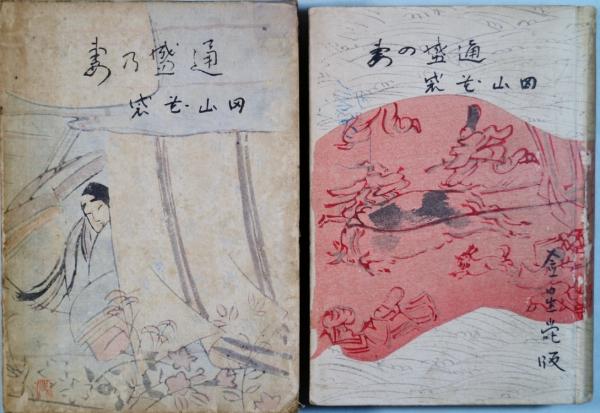 通盛乃妻
田山花袋
通盛の妻
田山花袋
金星堂版